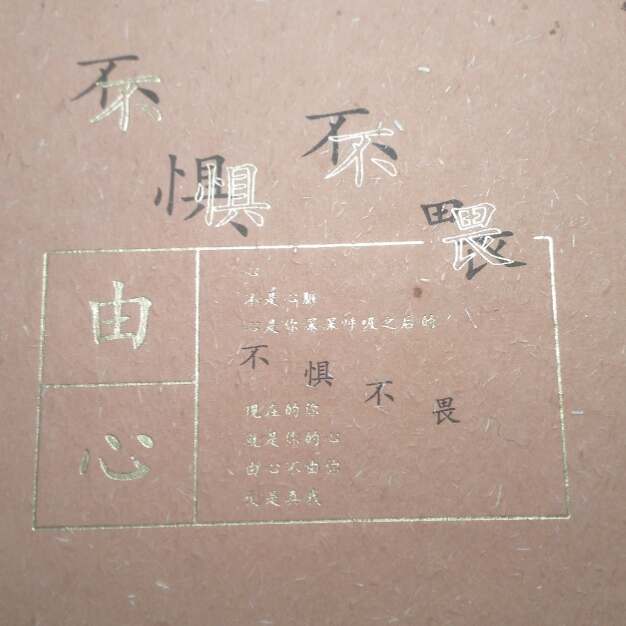 不惧不畏
由心
心
不是心脏
心是你深深呼吸之后的
不惧不畏
现在的你
就是你的心
由心不由你
便是真我